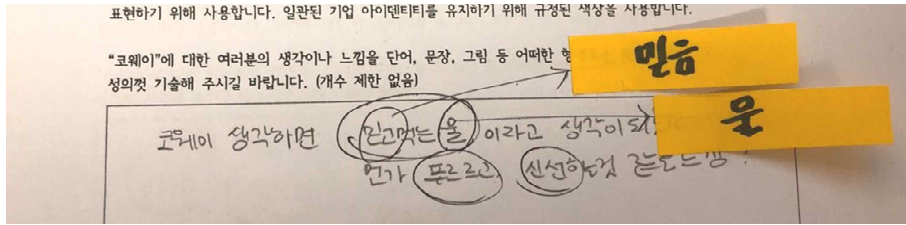 표현하기 위해 사용합니다. 일관된 기업 아이덴티티를 유지하기 위해 규정된 색상을 사용합니다.
“코웨이”에 대한 여러분의 생각이나 느낌을 단어, 문장, 그림 등 어떠한
성의껏 기술해 주시길 바랍니다. (개수 제한 없음)
믿음
물
코웨이 생각하면 믿고먹는 물, 이라고 생각이
먼가 푸르르고, 신선하는것 같은느낌!